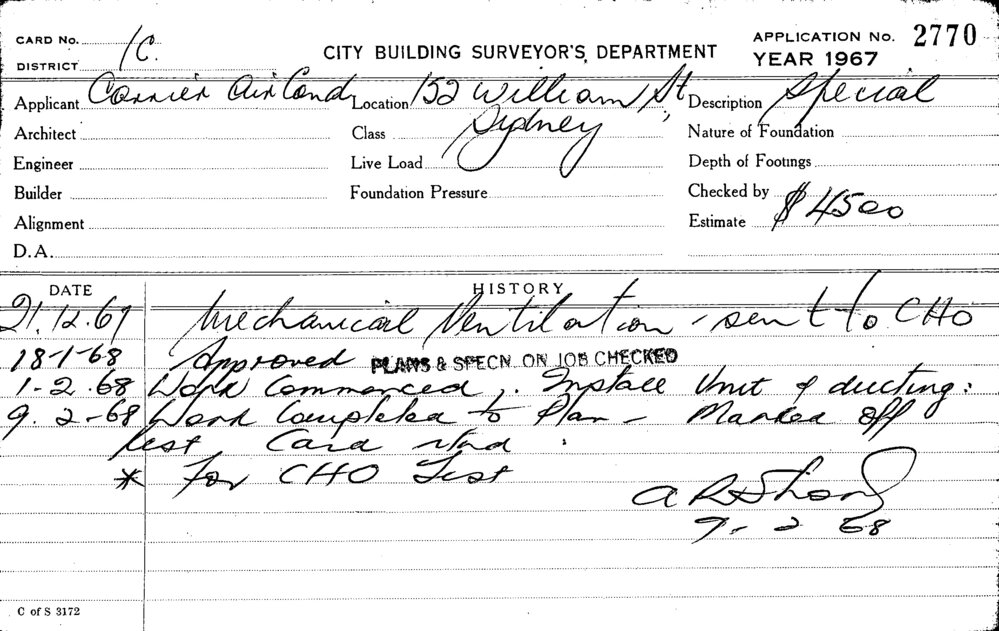 CARD No. 1C.
DISTRICT
CITY BUILDING SURVEYOR'S DEPARTMENT
APPLICATION No. 2770
YEAR 1967
Applicant Carrier Air Cond Location 152 William St, Description Special
Architect Class Sydney Nature of Foundation
Engineer Live Load Depth of Footings
Builder Foundation Pressure Checked by
Alignment Estimate $4500
D.A.
DATE HISTORY
21.12.67 Mechanical Ventilation - sent to CHO
18-1-68 Approved PLANS & SPECN. ON JOB CHECKED
1-2-68 Work Commenced. Install Unit & ducting:
9.2-68 Work Completed to Plan - Marked off
Card
* For CHO Test
9. 2 68
C of S 3172